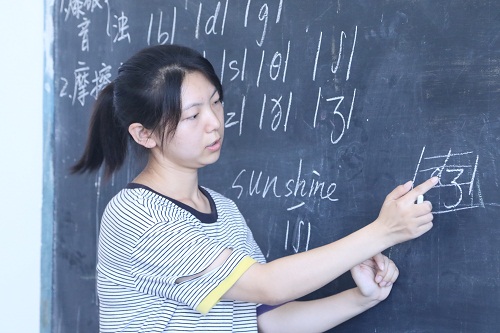 爆破
音 浊 |b| |d| |g|
2. 摩擦 |s| |θ| |ʃ|
z| |ð| |ʒ|
sunshine
|ʃ|
ʒ|